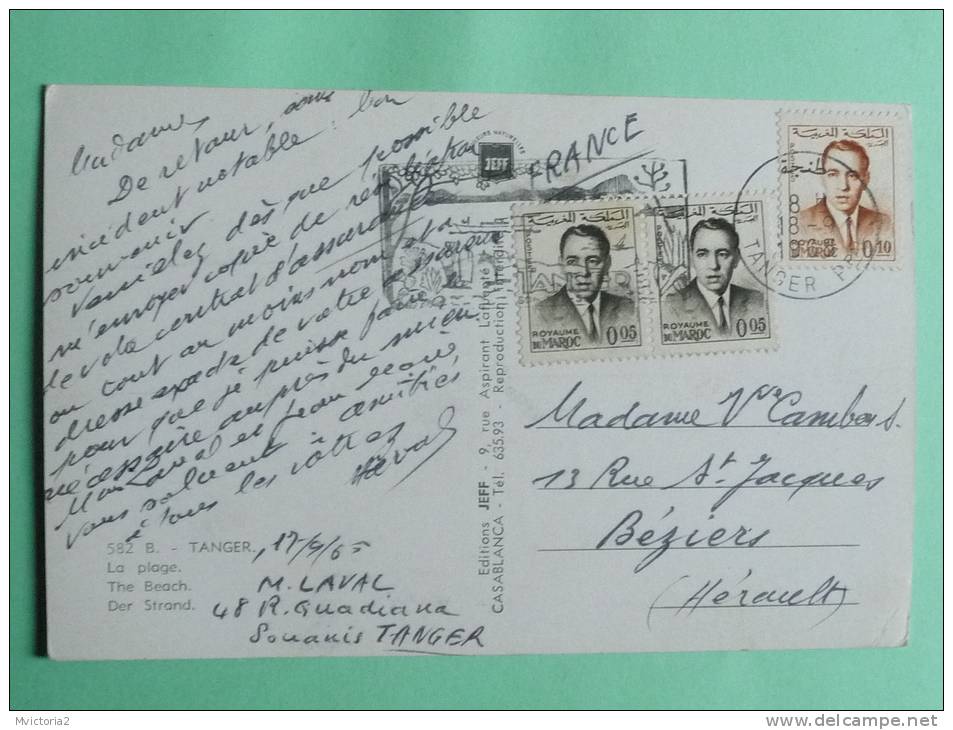 Madame,
De retour, sans
incident notable : bon
souvenir
Veuillez dès que possible
m'envoyer copie de
de vo contrat d'assurance
ou tout au moins nom et a
dresse exacte de votre assureur
pour que je puisse faire le
nécessaire auprès du mien.
Mme Laval et Jean
vous saluent amitiés
à tous les vôtres
582 B. - TANGER, 17/9/65
La plage.
The Beach.
Der Strand.
M. LAVAL
48 R. Guadiana
Souanis TANGER
JEFF
Editions JEFF - 9, rue Aspirant Lafuente
CASABLANCA - Tél. 635.93 - Reproduction interdite
FRANCE
المملكة المغربية
ROYAUME
DU MAROC 0,05
المملكة المغربية
ROYAUME
DU MAROC 0,05
المملكة المغربية
ROYAUME
DU MAROC 0,10
TANGER
طنجة
TANGER
Madame Vve Cambos.
13 Rue St Jacques
Béziers
(Hérault)
Mvictoria2
www.delcampe.net